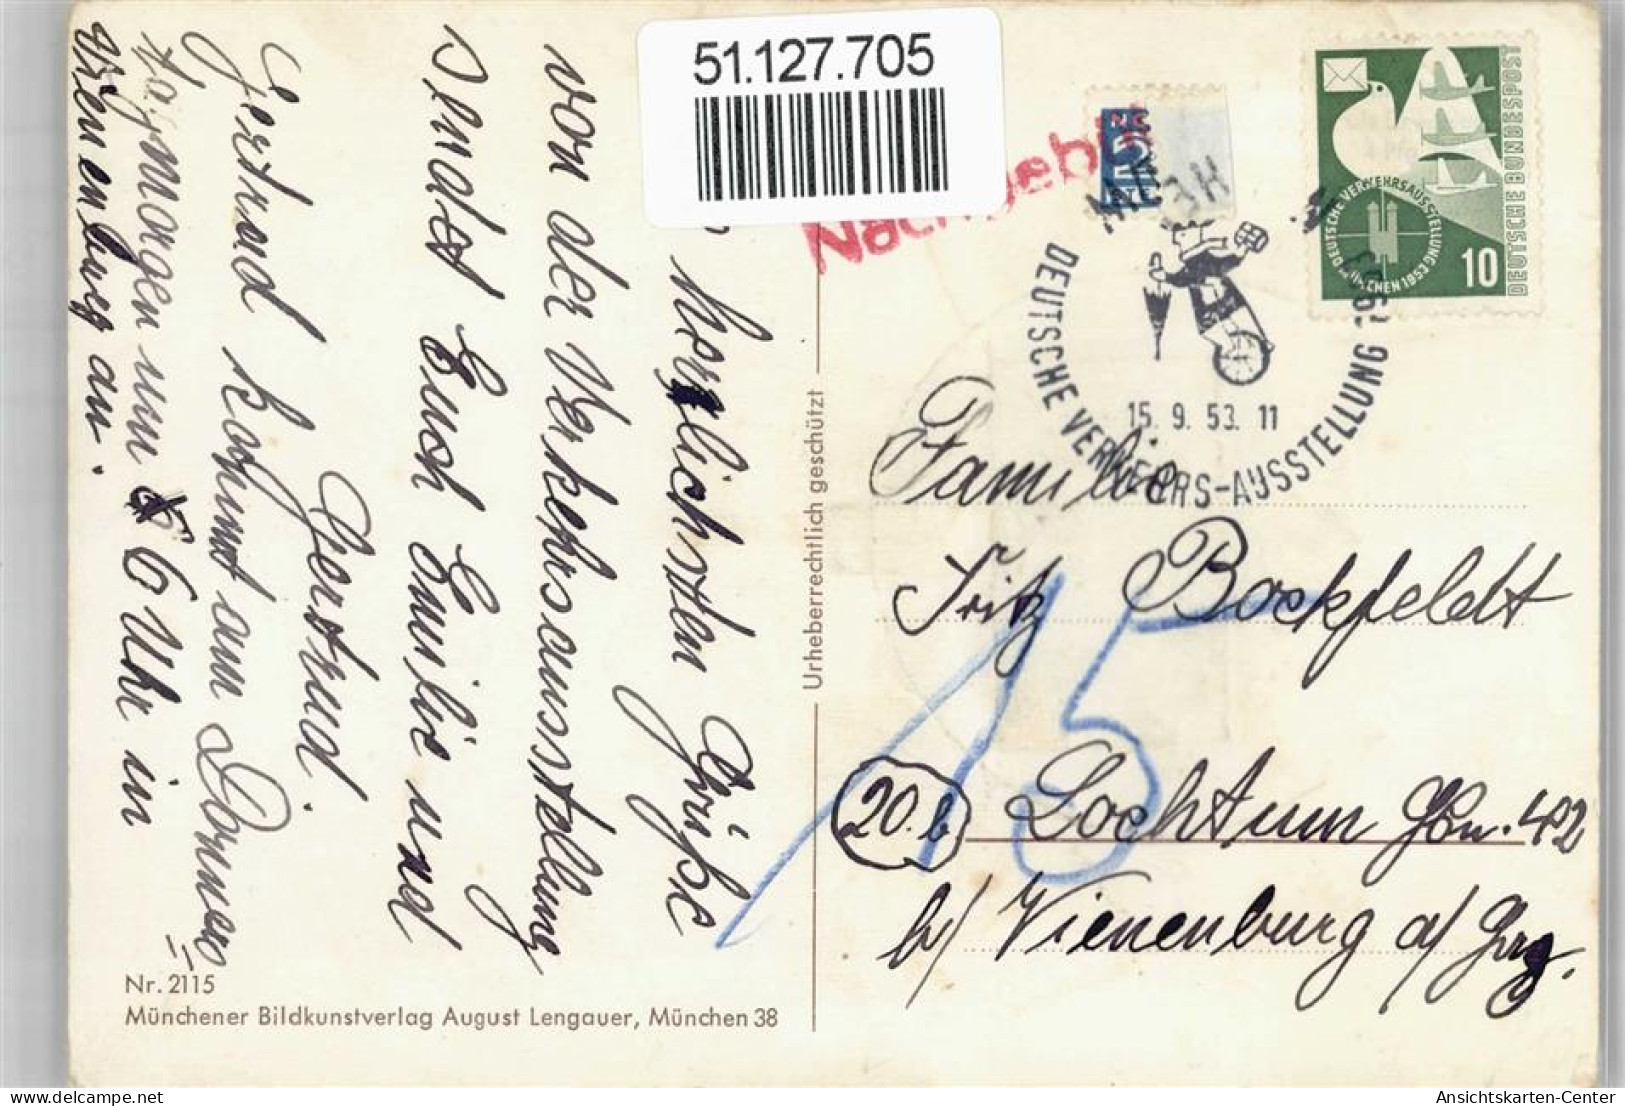 51.127.705
Nachgebühr
DEUTSCHE BUNDESPOST
DEUTSCHE VERKEHRSAUSSTELLUNG
MÜNCHEN 1953
10
2
DEUTSCHE VERKEHRS-AUSSTELLUNG 1953
15. 9. 53. 11
herzlichsten Grüße
von der Verkehrsausstellung
sendet Euch Emilie und
Gertrud.
Gertrud kommt am Donners
tagmorgen um 6 Uhr in
Vienenburg an.
Urheberrechtlich geschützt
Familie
Fritz Bockfeldt
15
20.b Lochtum Hsn. 42
b/ Vienenburg a/ Hrz.
Nr. 2115
Münchener Bildkunstverlag August Lengauer, München 38
Ansichtskarten-Center